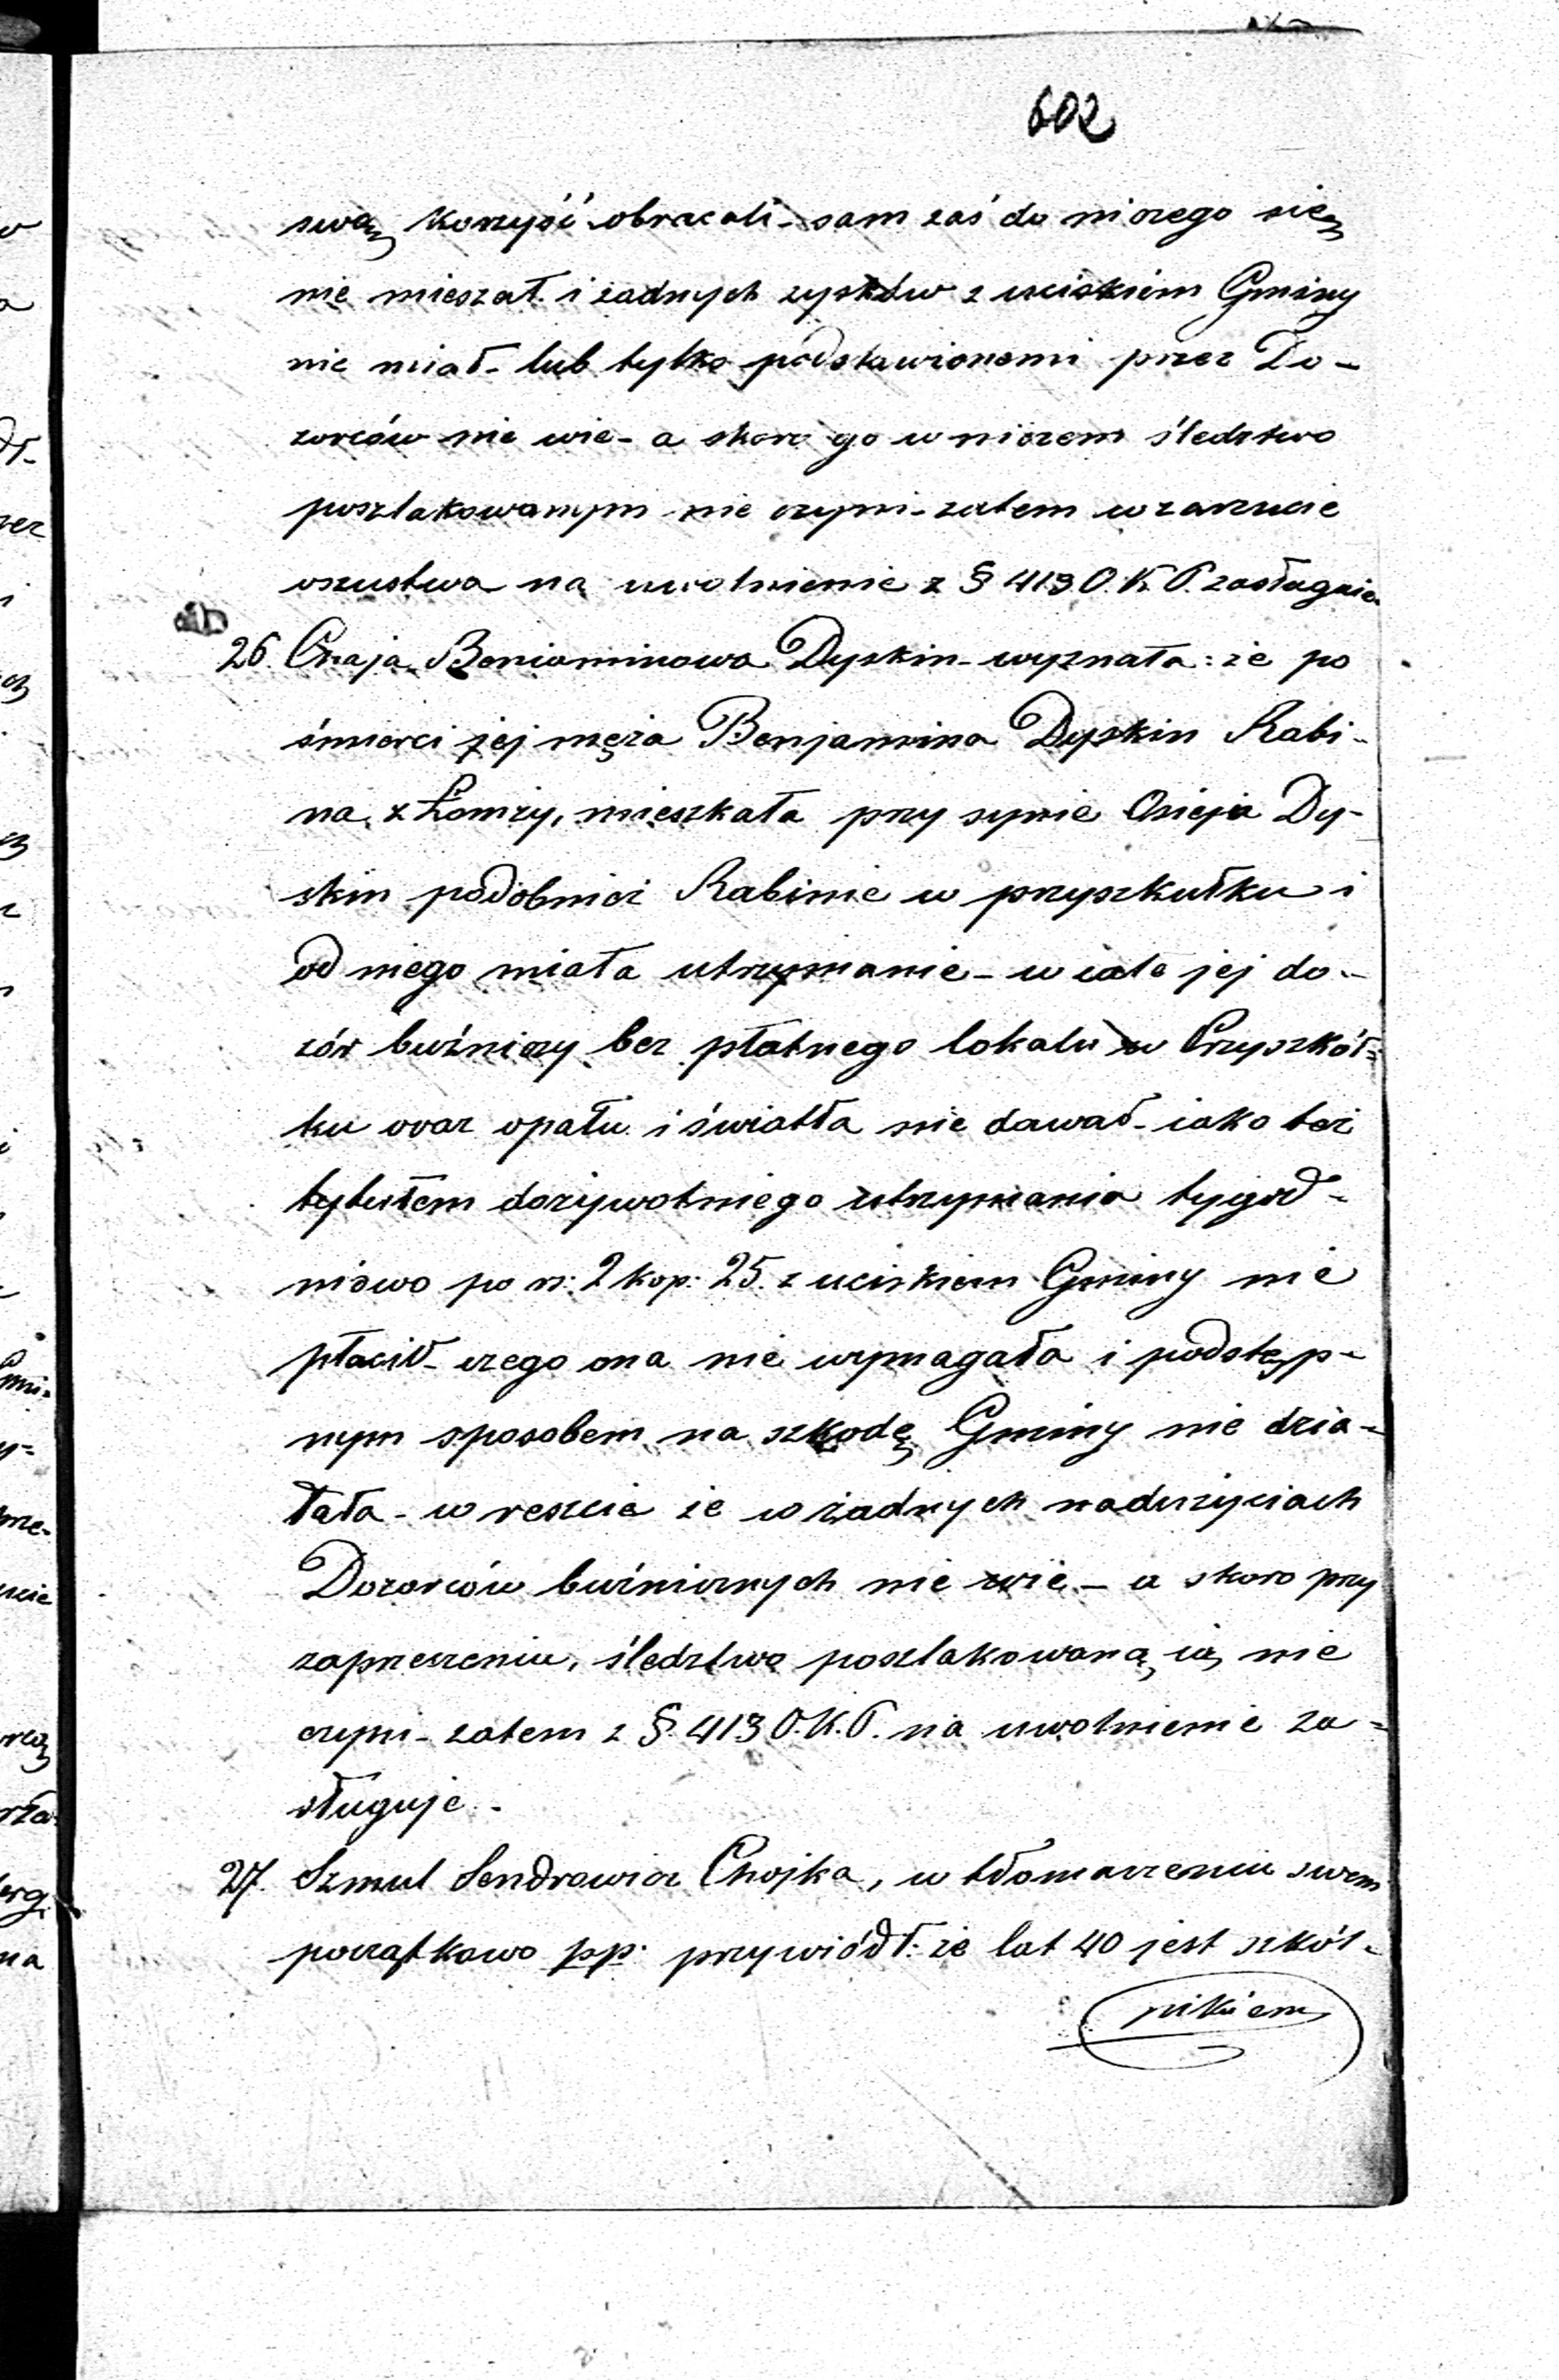 602
swą korzyść obracali - sam zaś do niczego się
nie mieszał i żadnych zysków z uciskiem Gminy
nie miał - lub tylko podstawionemi przez Do-
zorców nie wie - a skoro go w niczem śledztwo
poszlakowanym nie czyni - zatem w zarzucie
oszustwa na uwolnienie z § 413 O.K.P. zasługuie
26. Chaja Beniaminowa Dyskin - wyznała: że po
śmierci jej męża Benjamina Dyskin Rabi-
na z Łomży, mieszkała przy synie Osieja Dy-
skin podobnież Rabinie w przyszkułku i
od niego miała utrzymanie - w cale jej do-
zór bużniczy bez płatnego lokalu w Przyszkół-
ku oraz opału i światła nie dawał - iako też
tytułem dożywotniego utrzymania tygod-
niowo po rs: 2 kop: 25. z uciskiem Gminy nie
płacił - czego ona nie wymagała i podstęp-
nym sposobem na szkodę Gminy nie dzia-
łała - w reszcie że w żadnych nadużyciach
Dozorców bużnicznych nie wie - a skoro przy
zaprzeczeniu, śledztwo poszlakowaną ią nie
czyni - zatem z §. 413 O.K.P. na uwolnienie za-
sługuje. -
27. Szmul Sendrowicz Chojka, w tłomaczeniu swem
początkowo pp. przywiódł: że lat 40 jest szkól-
nikiem